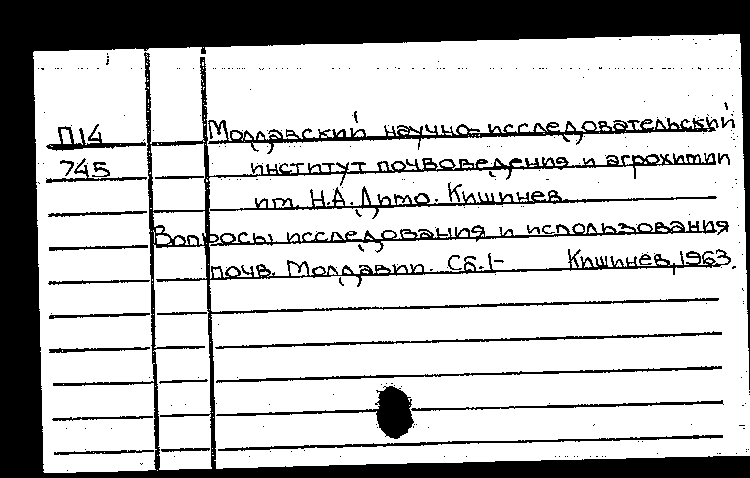 П14 Молдавский научно-исследовательский
745 институт почвоведения и агрохимии
им. Н.А. Димо. Кишинев.
Вопросы исследования и использования
почв. Молдавии. Сб.1- Кишинев, 1963.